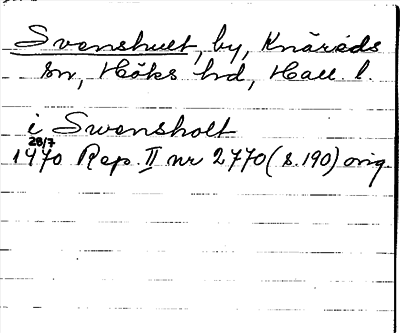 Svenshult, by, Knäreds
sn, Höks hd, Hall. l.
i Swensholt
28/7
1470 Rep. II nr 2770 (s. 190) orig.